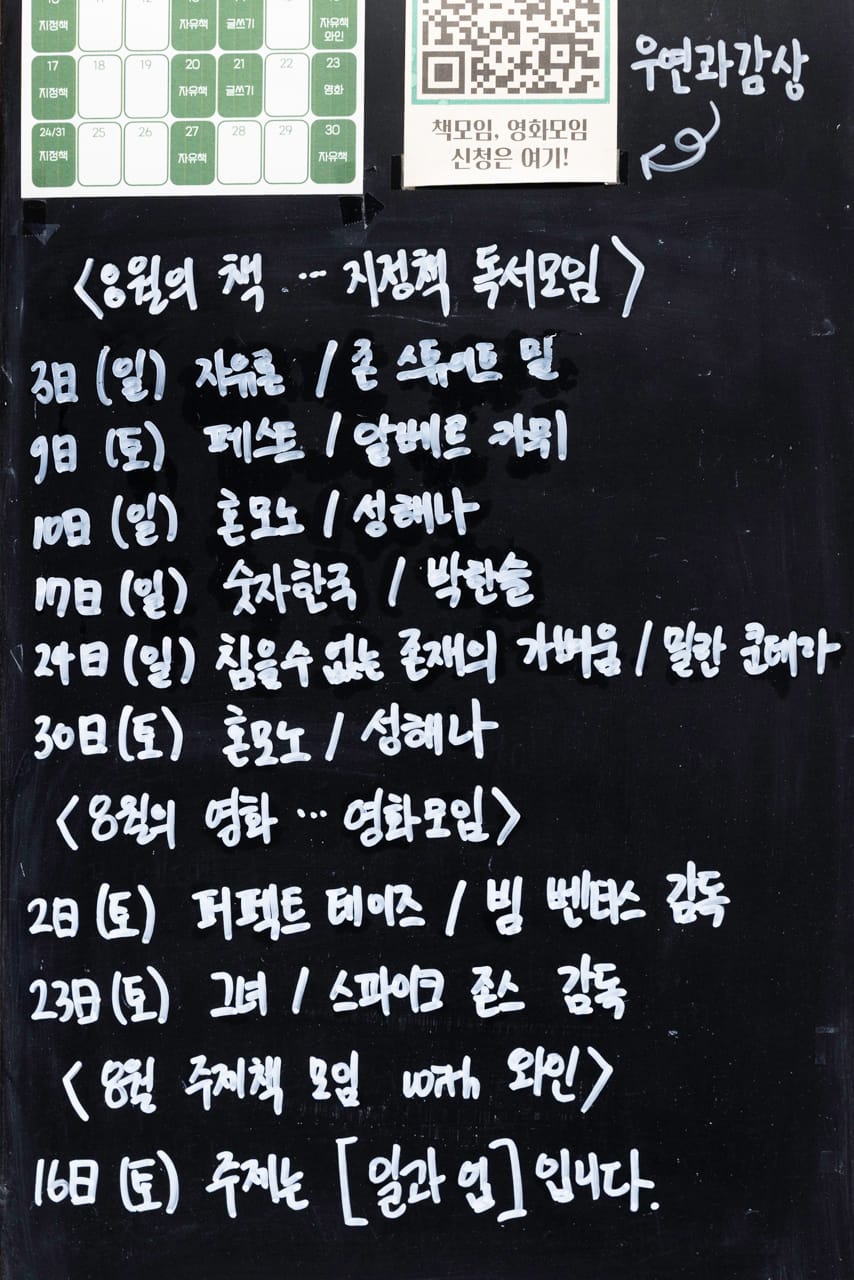 지정책 자유책 글쓰기 자유책 와인
17 18 19 20 21 22 23
지정책 자유책 글쓰기 영화
24/31 25 26 27 28 29 30
지정책 자유책 자유책
책모임, 영화모임
신청은 여기!
우연과감상
<8월의 책 … 지정책 독서모임>
3日 (일) 자유론 / 존 스튜어트 밀
9日 (토) 페스트 / 알베르 카뮈
10日 (일) 혼모노 / 성해나
17日 (일) 숫자한국 / 박한슬
24日 (일) 참을수 없는 존재의 가벼움 / 밀란 쿤데라
30日 (토) 혼모노 / 성해나
<8월의 영화 … 영화모임>
2日 (토) 퍼펙트 데이즈 / 빔 벤더스 감독
23日 (토) 그녀 / 스파이크 존스 감독
<8월 주제책 모임 with 와인>
16日 (토) 주제는 [일과 업]입니다.